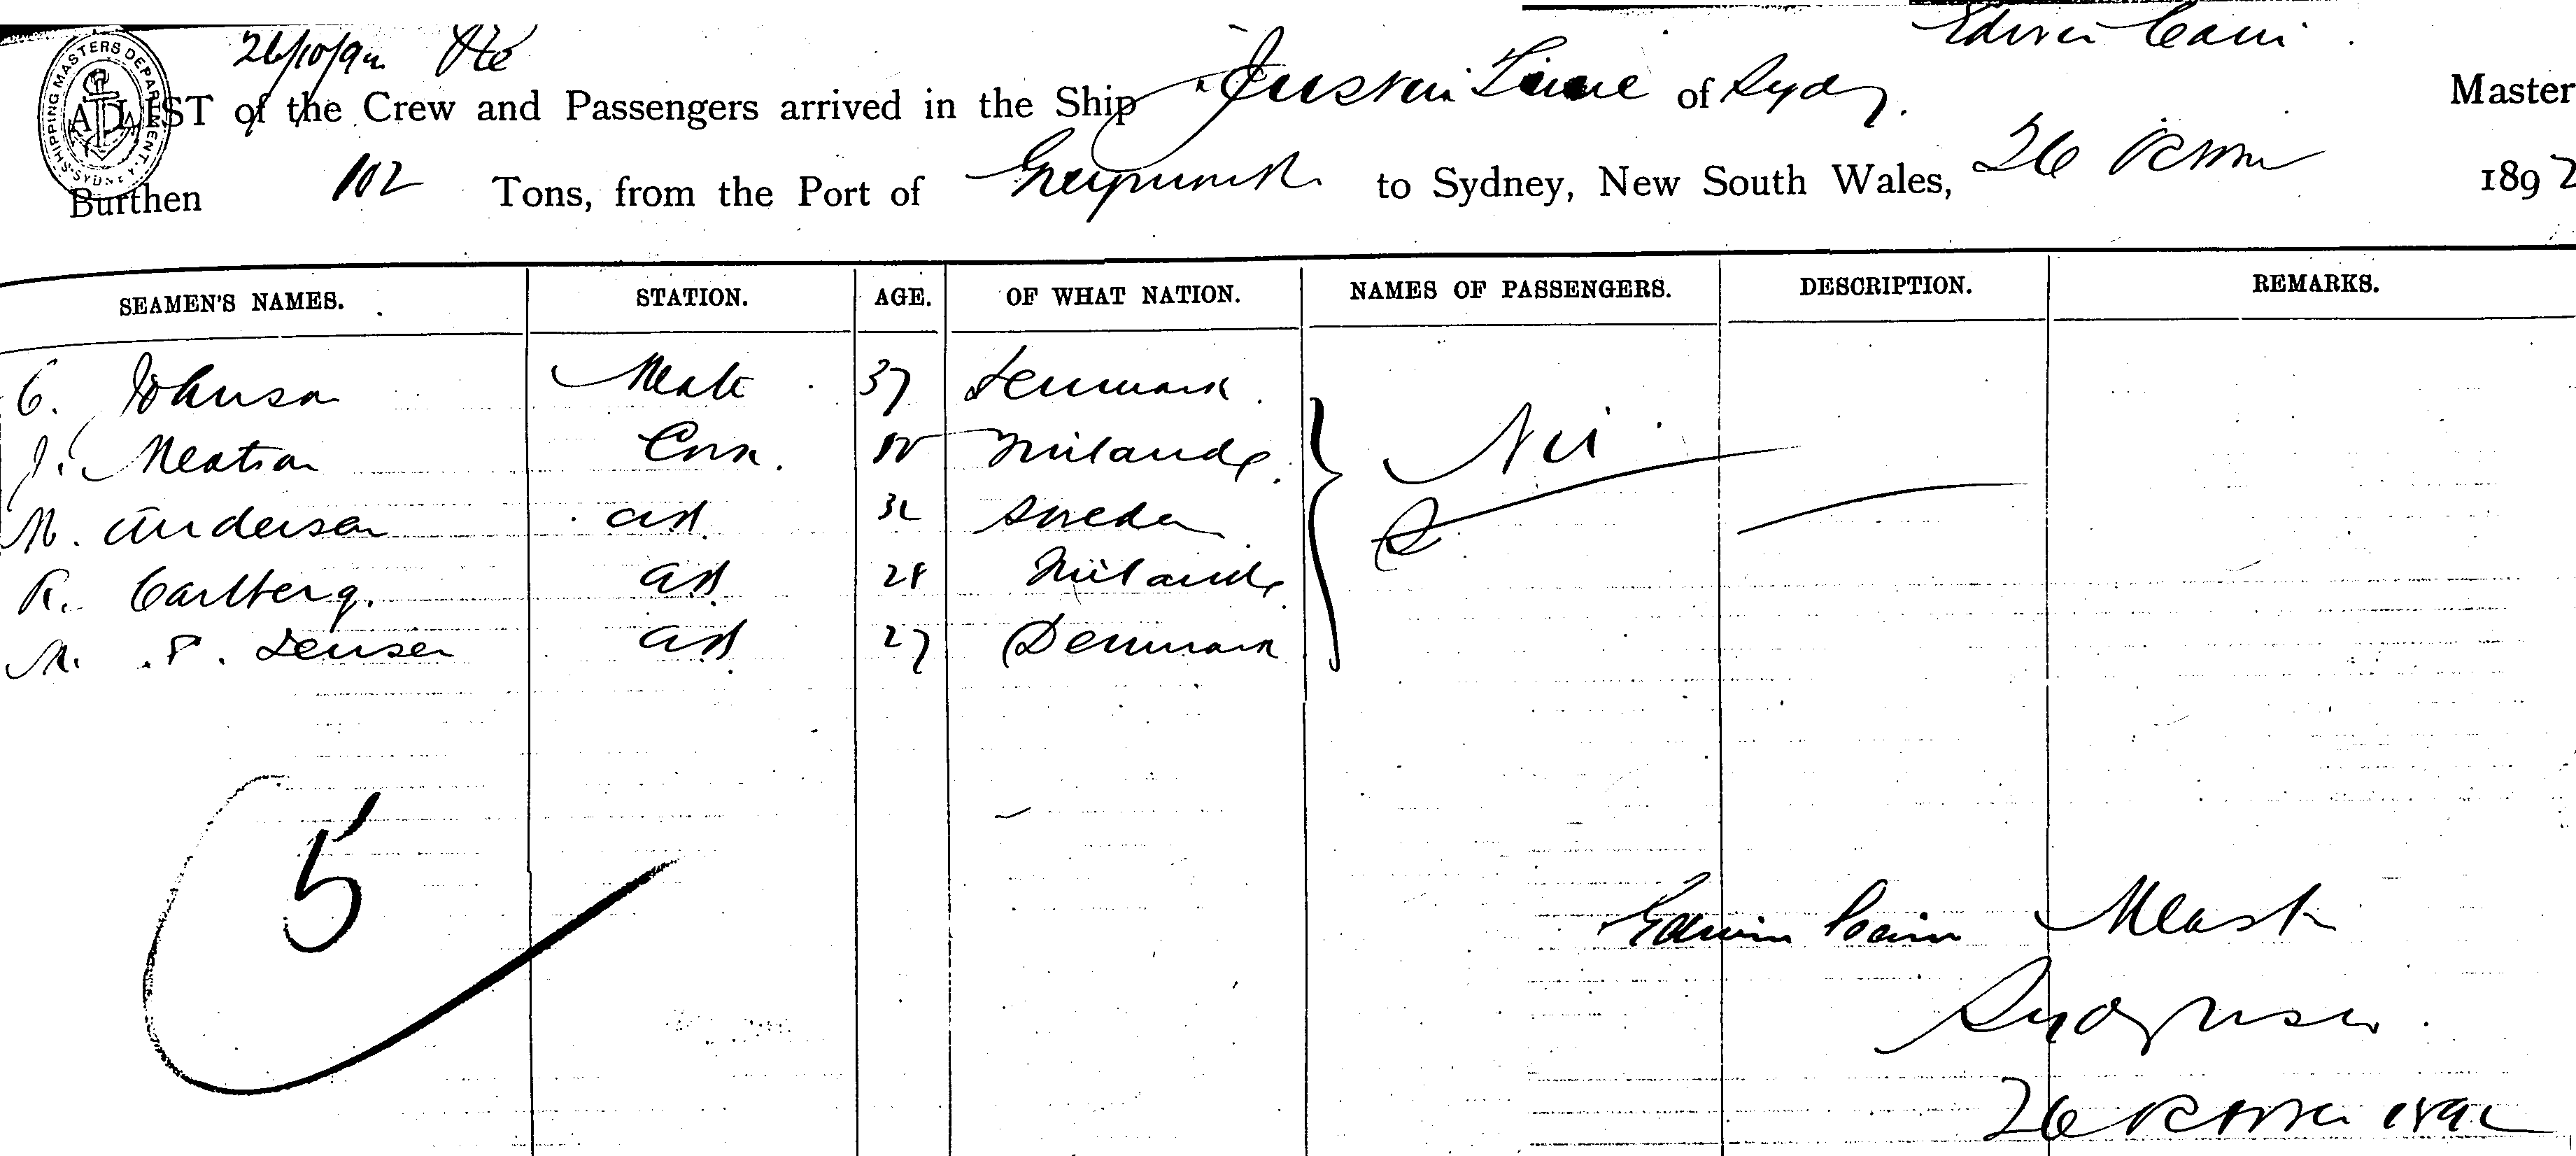 26/10/92
Edwin Cain
SHIPPING MASTERS DEPARTMENT. SYDNEY.
A LIST of the Crew and Passengers arrived in the Ship of Sydy. Master
Burthen 102 Tons, from the Port of Greymouth to Sydney, New South Wales, 26 1892
SEAMEN'S NAMES. STATION. AGE. OF WHAT NATION. NAMES OF PASSENGERS. DESCRIPTION. REMARKS.
C. Johnson Mate 37 Denmark.
J. Cook. Finland
M. Anderson AB 32 Sweden Nil
K. Carlberg. AB 28 Finland
M. P. Jensen AB 27 Denmark
5
Edwin Cain Master
Sydy NSW.
26 1892